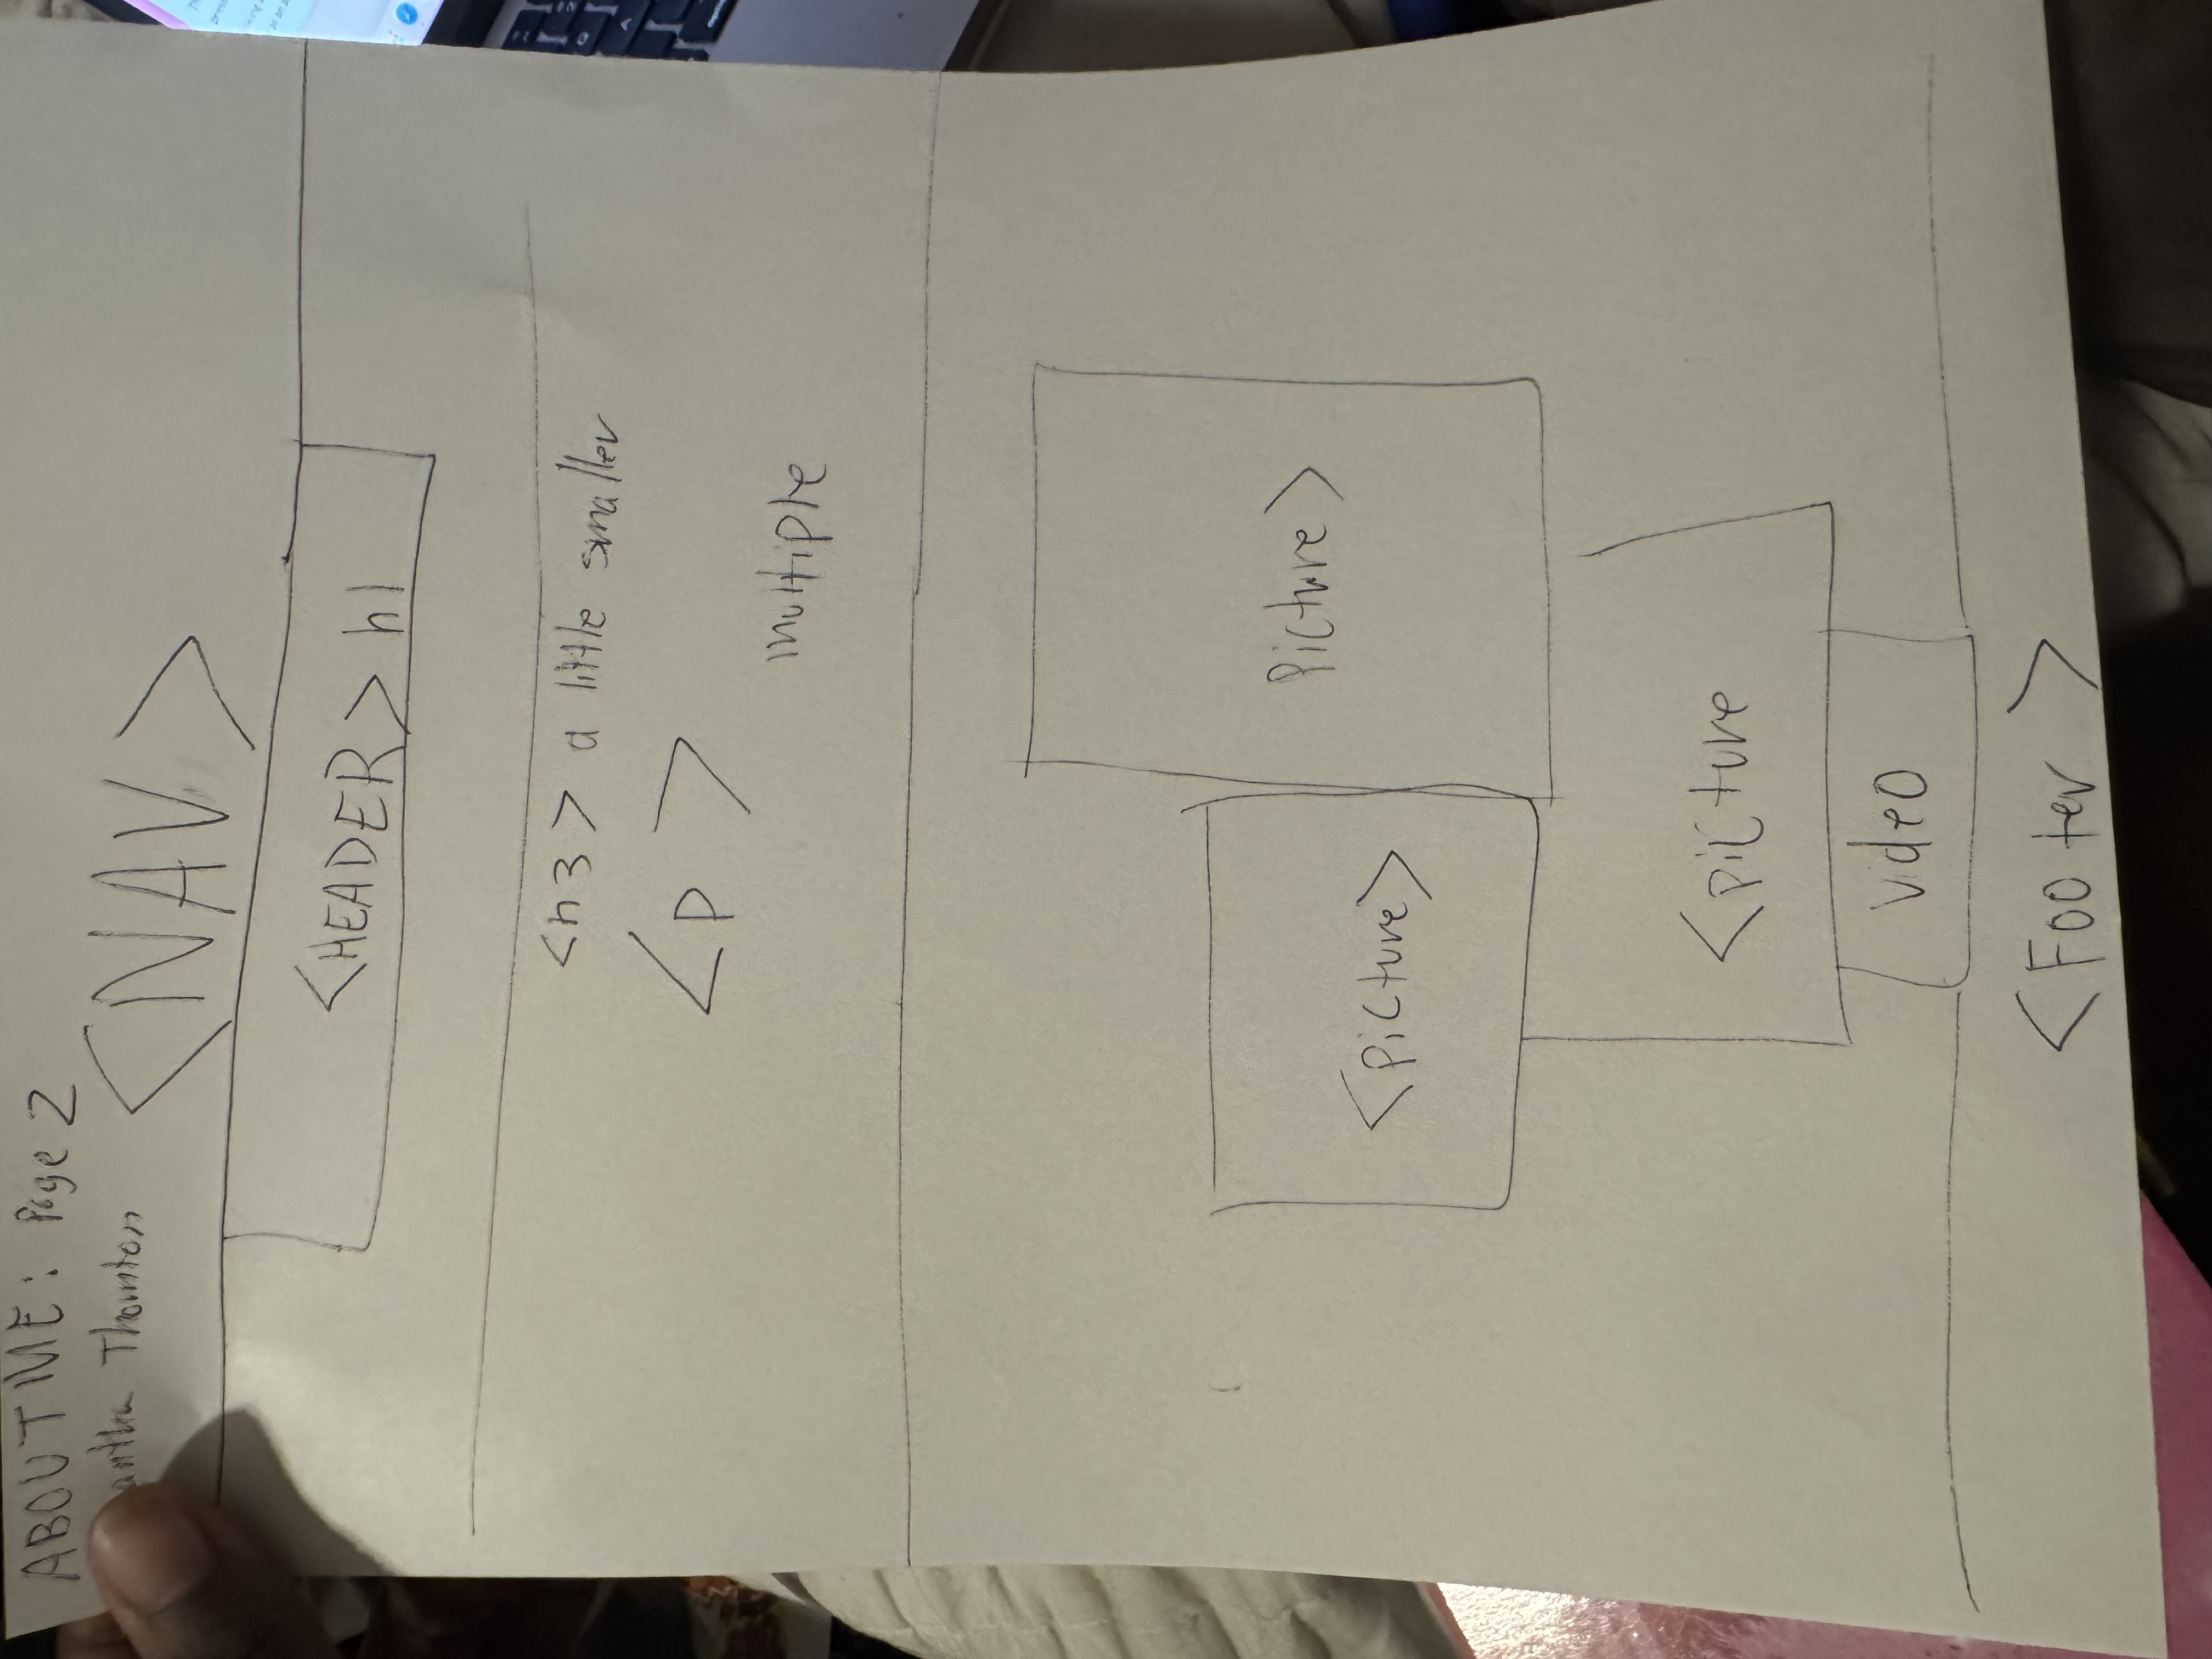 ABOUT ME: Page 2
antha Thornton
<NAV>
<HEADER> h1
<h3> a little smaller
<p>
multiple
Picture>
<picture>
<picture
video
<Footer>